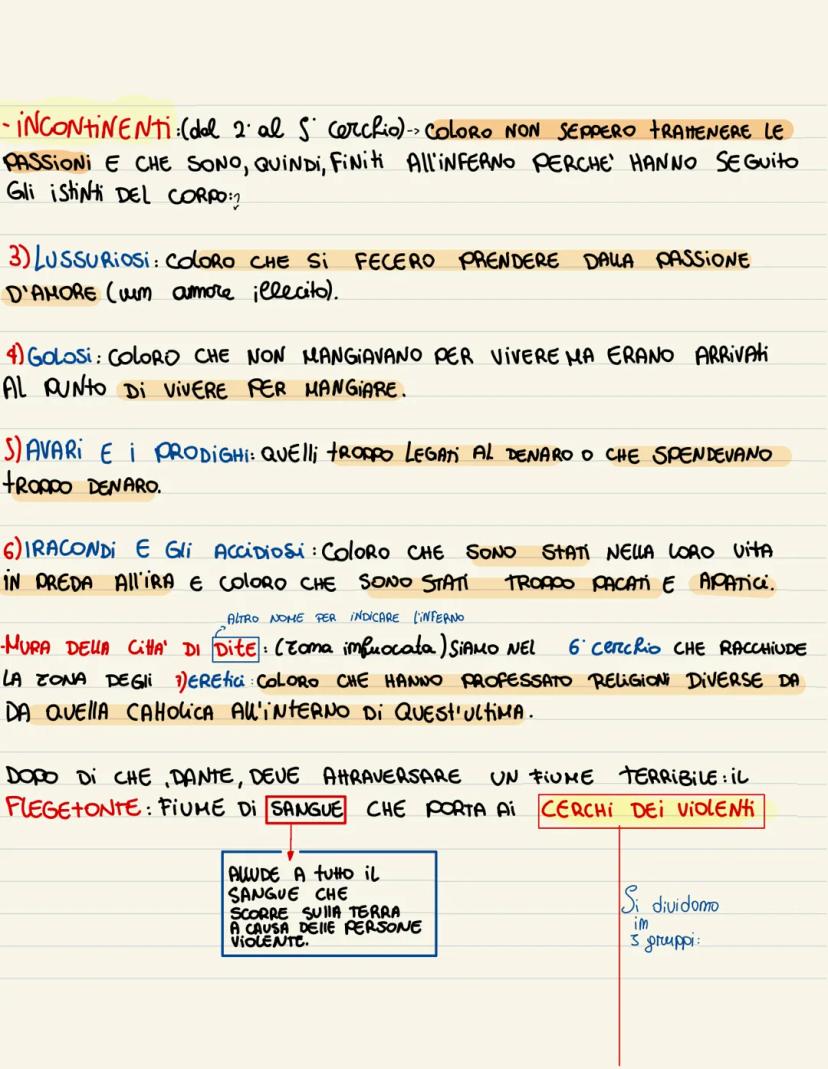 - INCONTINENTI: (dal 2° al 5° cerchio) -> COLORO NON SEPPERO TRATTENERE LE
PASSIONI E CHE SONO, QUINDI, FINITI ALL'INFERNO PERCHE' HANNO SEGUITO
GLI ISTINTI DEL CORPO:
3) LUSSURIOSI: COLORO CHE SI FECERO PRENDERE DALLA PASSIONE
D'AMORE (um amore illecito).
4) GOLOSI: COLORO CHE NON MANGIAVANO PER VIVERE MA ERANO ARRIVATI
AL PUNTO DI VIVERE PER MANGIARE.
5) AVARI E I PRODIGHI: QUELLI TROPPO LEGATI AL DENARO O CHE SPENDEVANO
TROPPO DENARO.
6) IRACONDI E GLI ACCIDIOSI: COLORO CHE SONO STATI NELLA LORO VITA
IN PREDA ALL'IRA E COLORO CHE SONO STATI TROPPO PACATI E APATICI.
ALTRO NOME PER INDICARE L'INFERNO
- MURA DELLA CITTA' DI DITE: (zona infuocata) SIAMO NEL 6° cerchio CHE RACCHIUDE
LA ZONA DEGLI 7) ERETICI: COLORO CHE HANNO PROFESSATO RELIGIONI DIVERSE DA
DA QUELLA CATTOLICA ALL'INTERNO DI QUEST'ULTIMA.
DOPO DI CHE, DANTE, DEVE ATTRAVERSARE UN FIUME TERRIBILE: IL
FLEGETONTE: FIUME DI SANGUE CHE PORTA AI CERCHI DEI VIOLENTI
ALLUDE A TUTTO IL
SANGUE CHE
SCORRE SULLA TERRA
A CAUSA DELLE PERSONE
VIOLENTE.
Si dividono
in
3 gruppi: